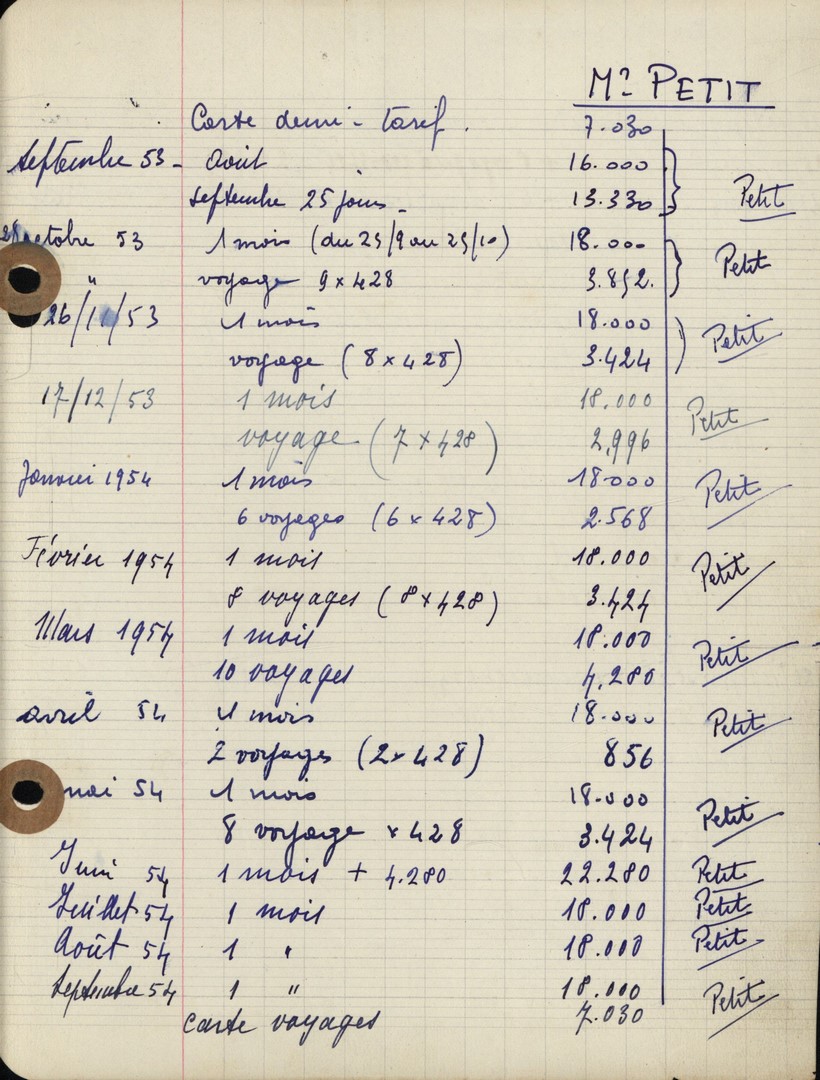 Mr PETIT
Carte demi-tarif. 7.030
Septembre 53 - Août 16.000
septembre 25 jours - 13.330 Petit
octobre 53 1 mois (du 25/9 au 25/10) 18.000 Petit
" voyage 9 x 428 3.852.
26/11/53 1 mois 18.000 Petit
voyage (8 x 428) 3.424
17/12/53 1 mois 18.000 Petit
voyage (7 x 428) 2,996
Janvier 1954 1 mois 18.000 Petit
6 voyages (6 x 428) 2.568
Février 1954 1 mois 18.000 Petit
8 voyages (8 x 428) 3.424
Mars 1954 1 mois 18.000 Petit
10 voyages 4.280
avril 54 1 mois 18.000 Petit
2 voyages (2 x 428) 856
mai 54 1 mois 18.000 Petit
8 voyage x 428 3.424
Juin 54 1 mois + 4.280 22.280 Petit
Juillet 54 1 mois 18.000 Petit
Août 54 1 " 18.000 Petit
Septembre 54 1 " 18.000 Petit
carte voyages 7.030